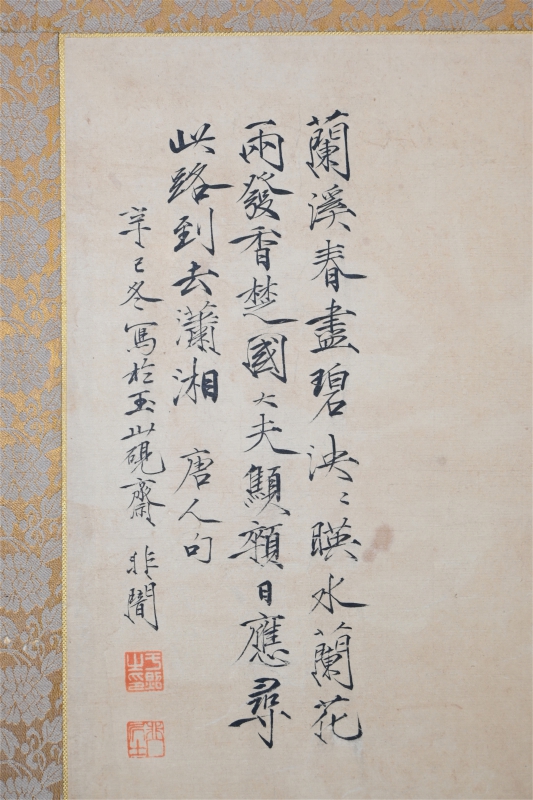 蘭溪春盡碧泱〻暎水蘭花
雨發香楚國大夫顦顇日應尋
此路到去瀟湘 唐人句
辛巳冬寫於玉山硯齋 非闇
于照之印
非厂居士